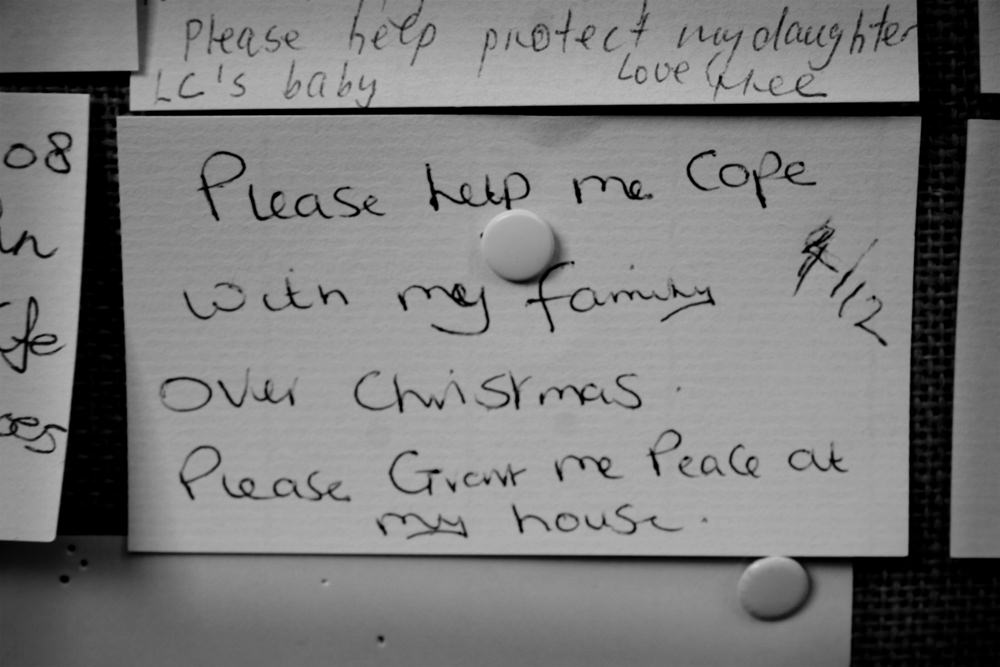 Please help protect my daughter
LC's baby Love
08
Please help me Cope
with my family
/12
over Christmas.
Please Grant me Peace at
my house.